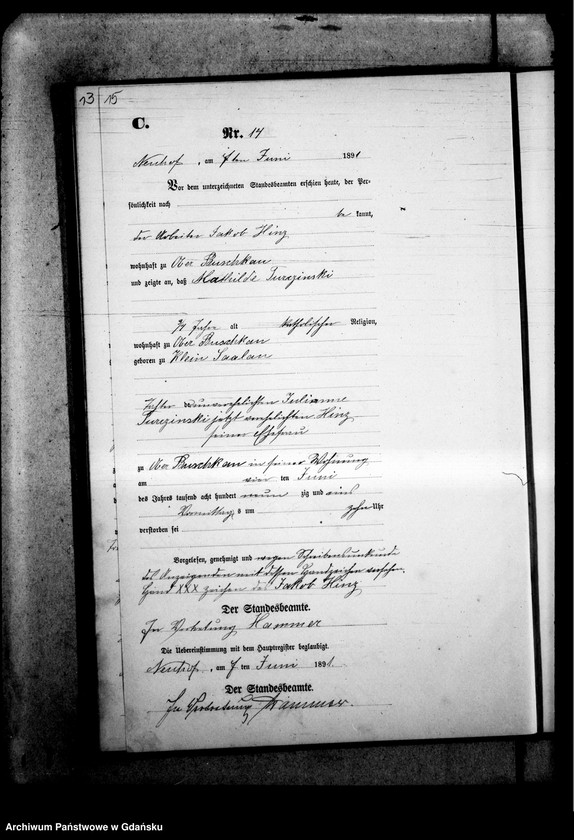 13 15
C.
Nr. 14
Neuhof, am ten Juni 1891
Vor dem unterzeichneten Standesbeamten erschien heute, der Per-
sönlichkeit nach
be kannt,
der Arbeiter Jakob Hinz
wohnhaft zu Ober Buschkau
und zeigte an, daß Mathilde Turezinski
Jahre alt katholischer Religion,
wohnhaft zu Ober Buschkau
geboren zu Klein Saalau
Tochter der unverehelichten Julianne
Turezinski jetzt verehelichten Hinz
seiner Ehefrau
zu Ober Buschkau in seiner Wohnung
am vier ten Juni
des Jahres tausend acht hundert neun zig und eins
Vormittags um zehn Uhr
verstorben sei
Vorgelesen, genehmigt und wegen Schreibensunkunde
des Anzeigenden mit dessen Handzeichen versehen.
Hand XXX zeichen des Jakob Hinz
Der Standesbeamte.
In Vertretung Hammer
Die Uebereinstimmung mit dem Hauptregister beglaubigt.
Neuhof, am ten Juni 1891
Der Standesbeamte.
In Vertretung Hammer
Archiwum Państwowe w Gdańsku